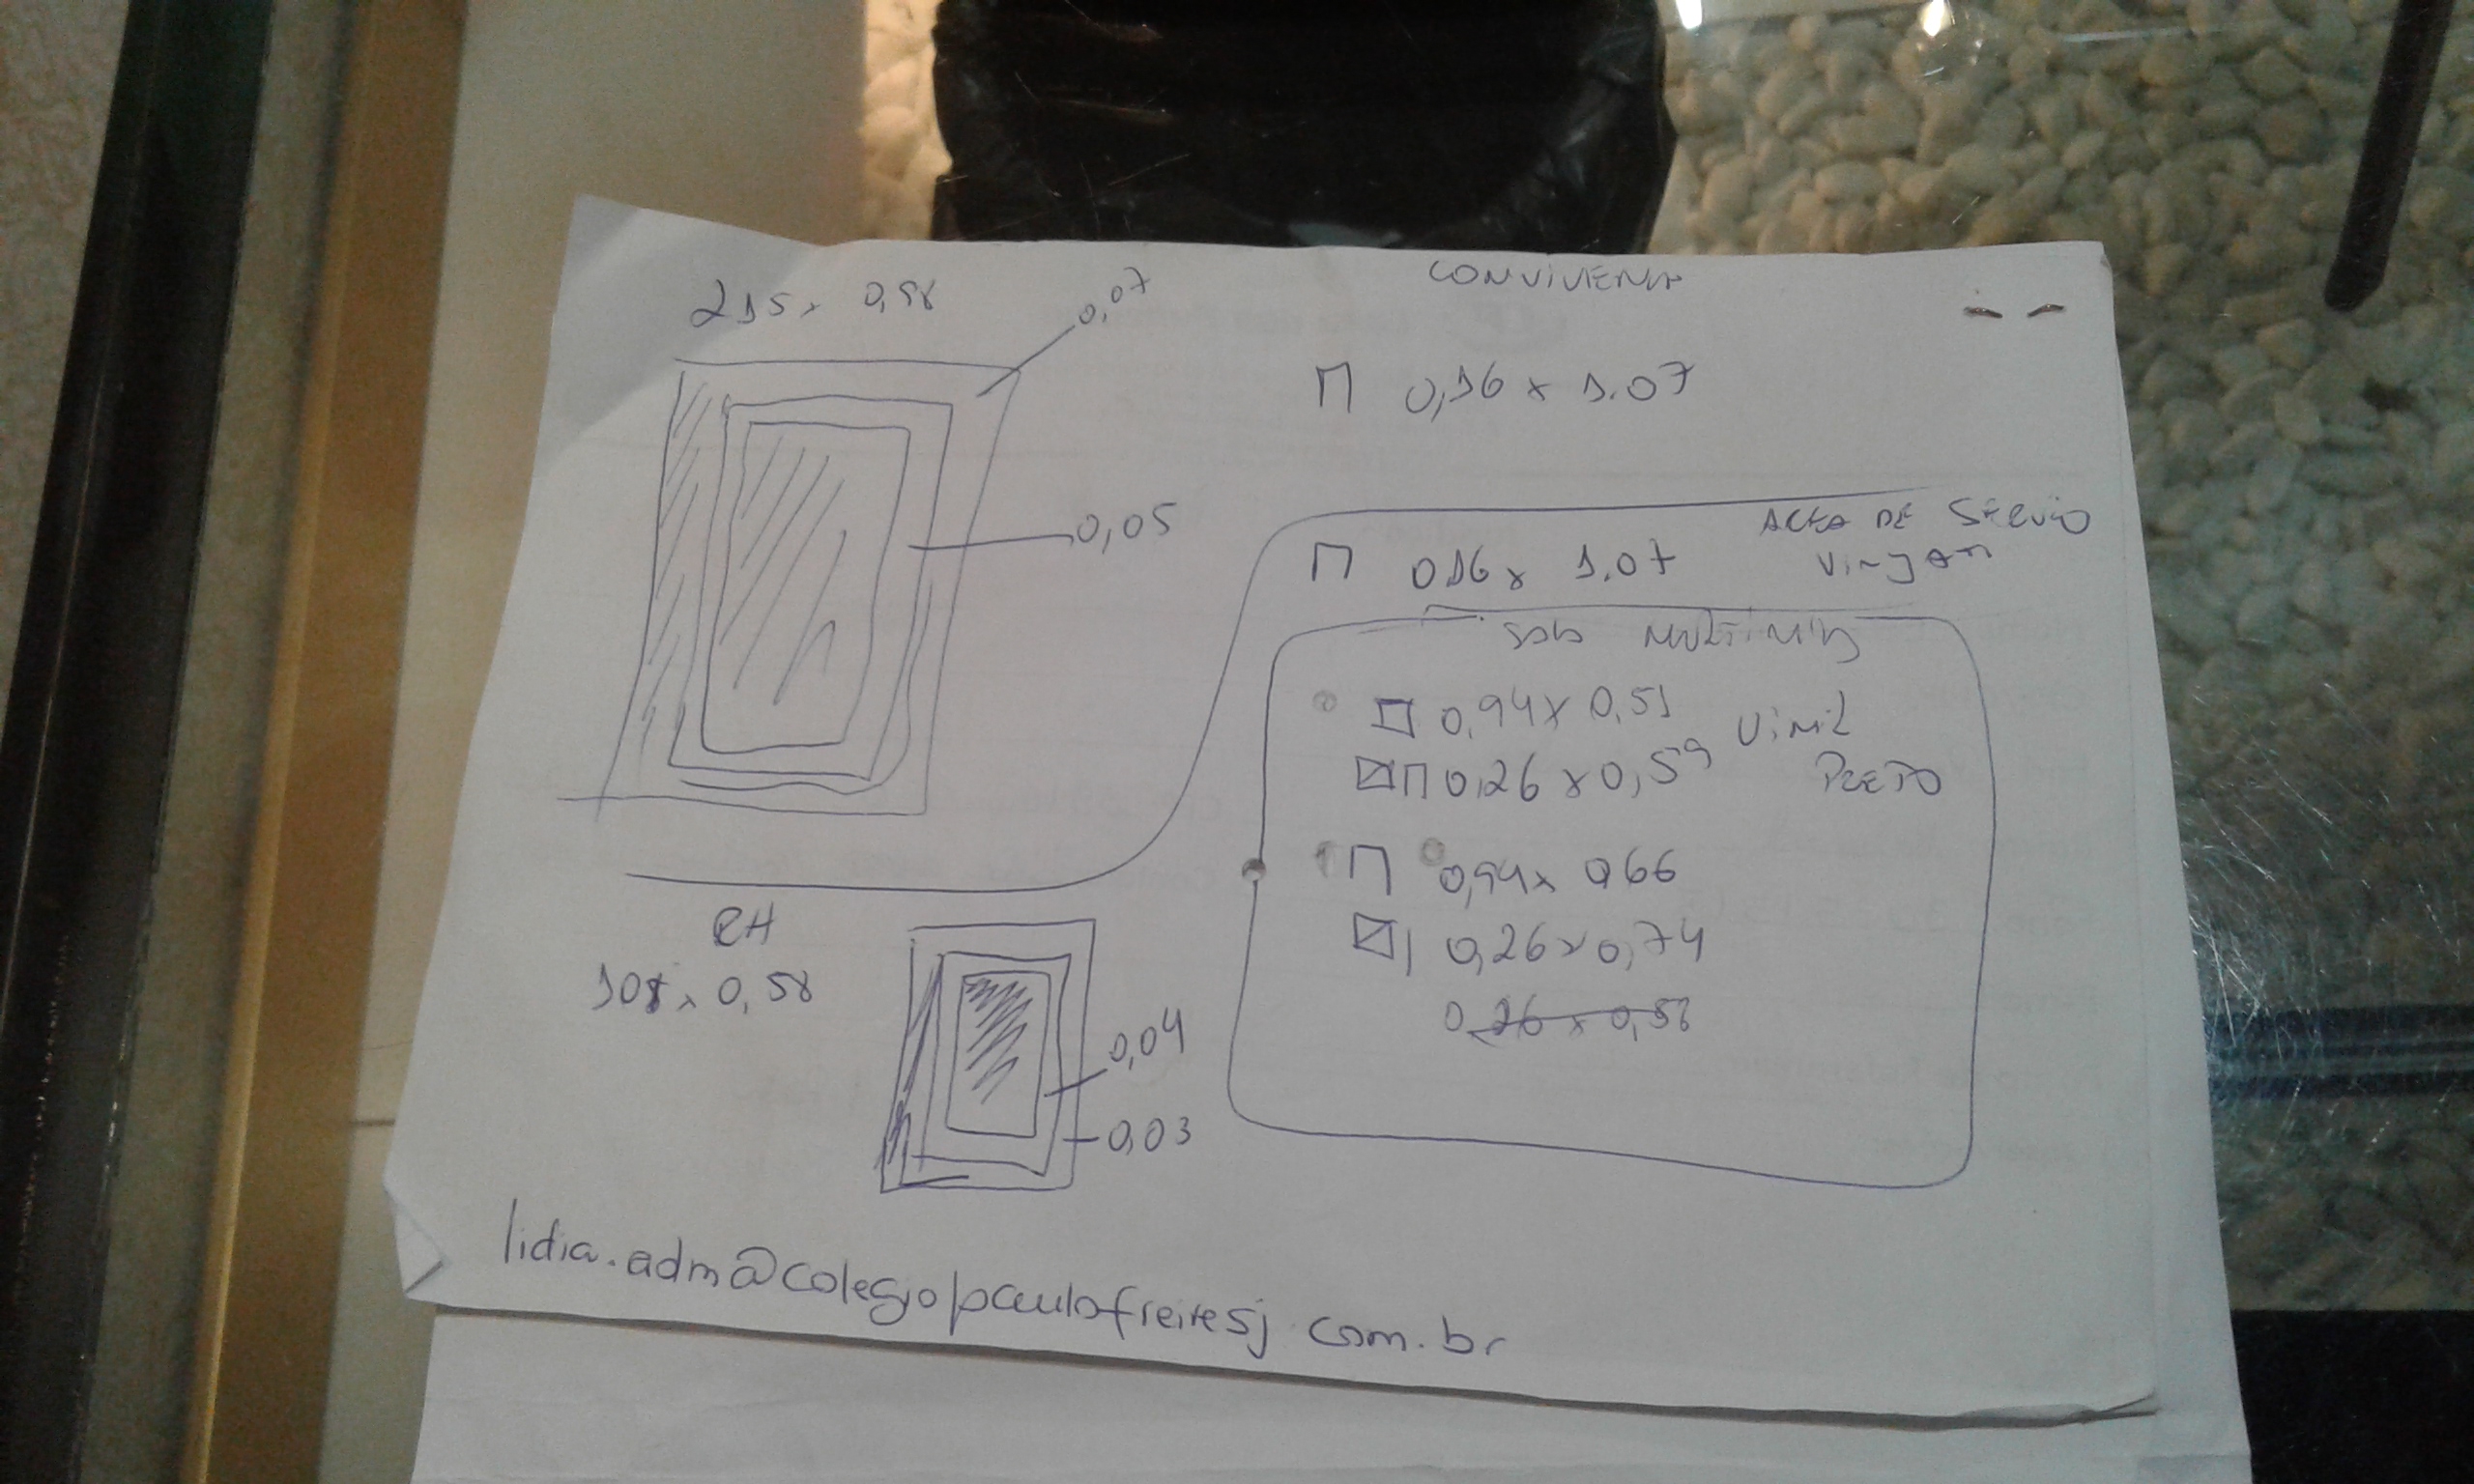 215 x 0,98
0,07
0,05
CONVIVENCIA
0,16 x 1.07
AREA DE SERVIÇO
016 x 1.07
SALA MULTIMIDIA
0,94 x 0,51
VINIL
0,26 x 0,59
PRETO
0,94 x 066
0,26 x 0,74
0,26 x 0,58
RH
108 x 0,58
0,04
0,03
lidia.adm@colegiopaulofreiresj com.br